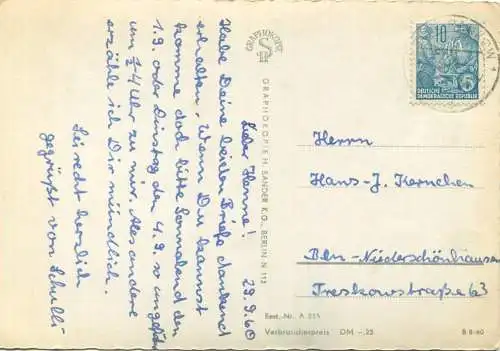 Lieber Hanne! 29.9.60
Habe Deine beiden Briefe dankend
erhalten. Wenn Du kannst
komme doch bitte Sonnabend den
1.9. oder Dinstag den 4.9. so ungefähr
um ½4 Uhr zu mir. Alles andere
erzähle ich Dir mündlich.
Sei recht herzlich
gegrüßt von Schulli
GRAPHOKOPIE
GRAPHOKOPIE H. SANDER K.G., BERLIN N 113
10
5
DEUTSCHE
DEMOKRATISCHE REPUBLIK
Herrn
Hans-J. Kernchen
Bln-Niederschönhausen
Treskowstraße 63
Best.-Nr. A 255
Verbraucherpreis DM -,25
B 8/60